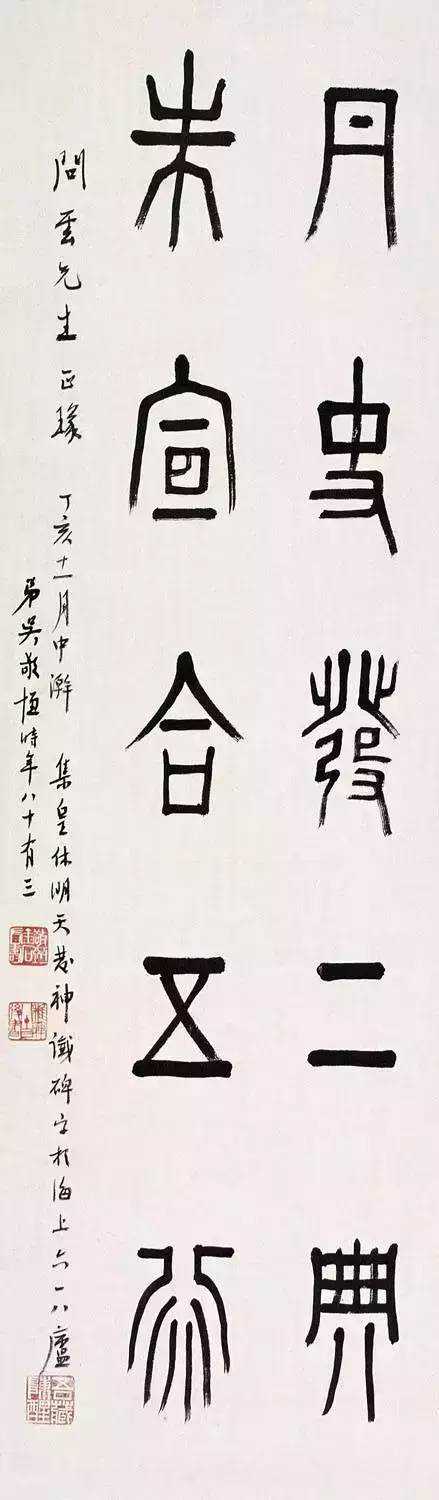 丹史發二典
朱宣合五
問雲先生正瑑 丁亥十一月中澣 集皇休明天發神讖碑字於海上六一八廬
弟吳敬恆時年八十有三